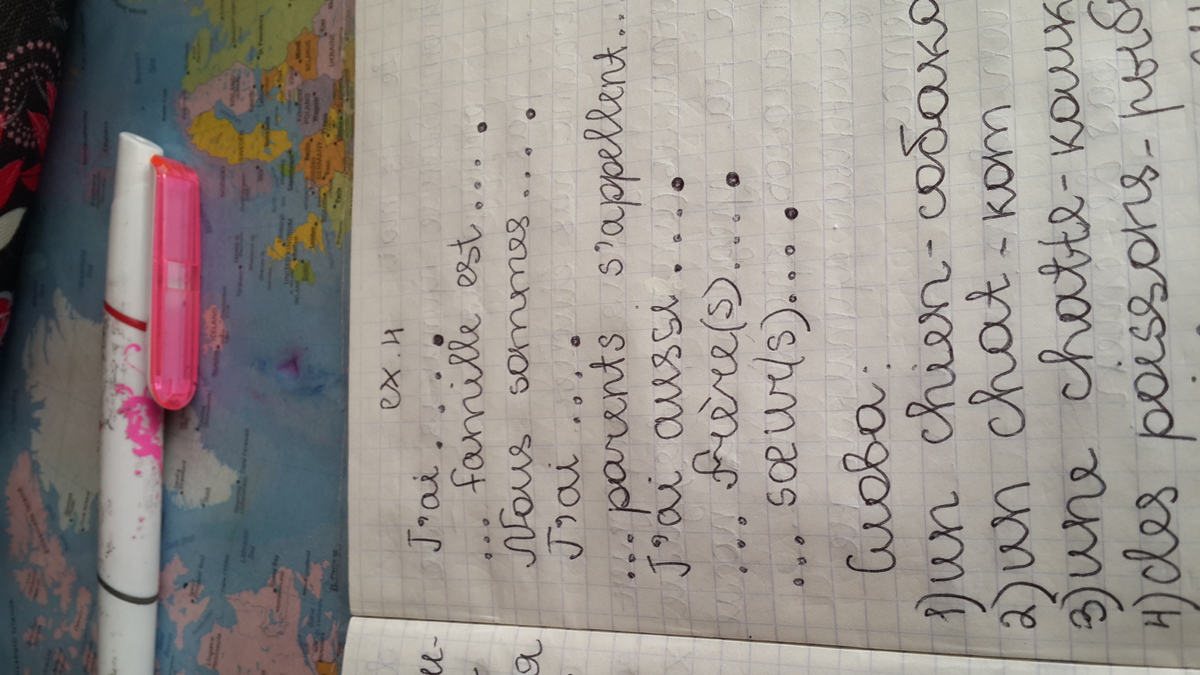 ex.4
J'ai.....
... famille est.....
Nous sommes.....
J'ai.....
... parents s'appellent..
J'ai aussi.....
... frère(s).....
... sœur(s).....
Слова:
1) un chien-собака
2) un chat-кот
3) une chatte-кошк
4) des poissons-рыб